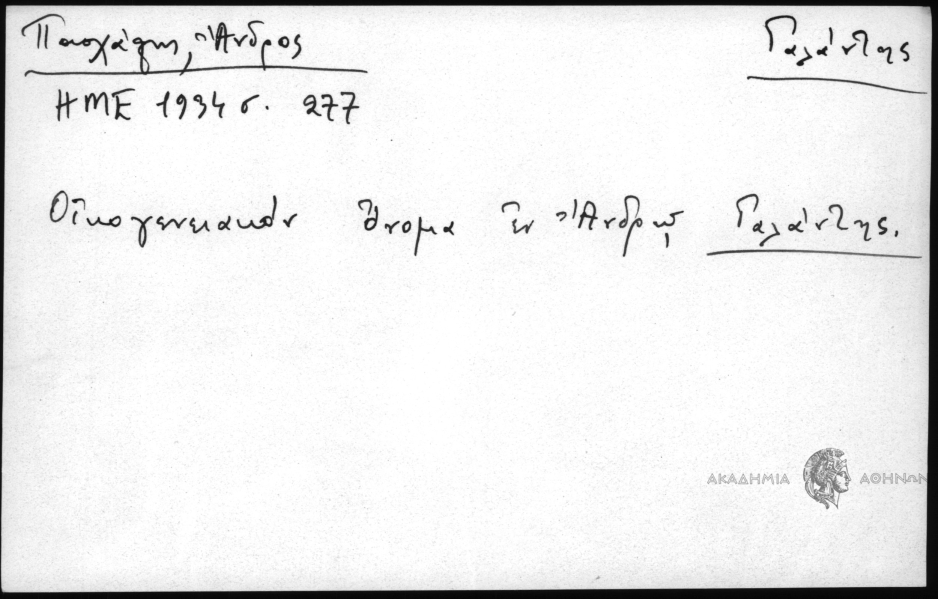 Πασχάλης, Ἄνδρος
Γαλάντης
ΗΜΕ 1934 σ. 277
Οἰκογενειακὸν ὄνομα ἐν Ἄνδρῳ Γαλάντης.
ΑΚΑΔΗΜΙΑ ΑΘΗΝΩΝ